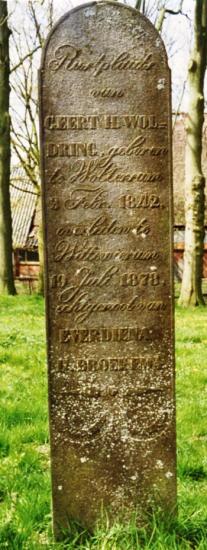 Rustplaats
van
GEERT H. WOL=
DRING, geboren
te Woltersum
3 Feb. 1842.
overleden te
Wittewierum
19 Juli 1878.
Echtgenoot van
EVERDIENA